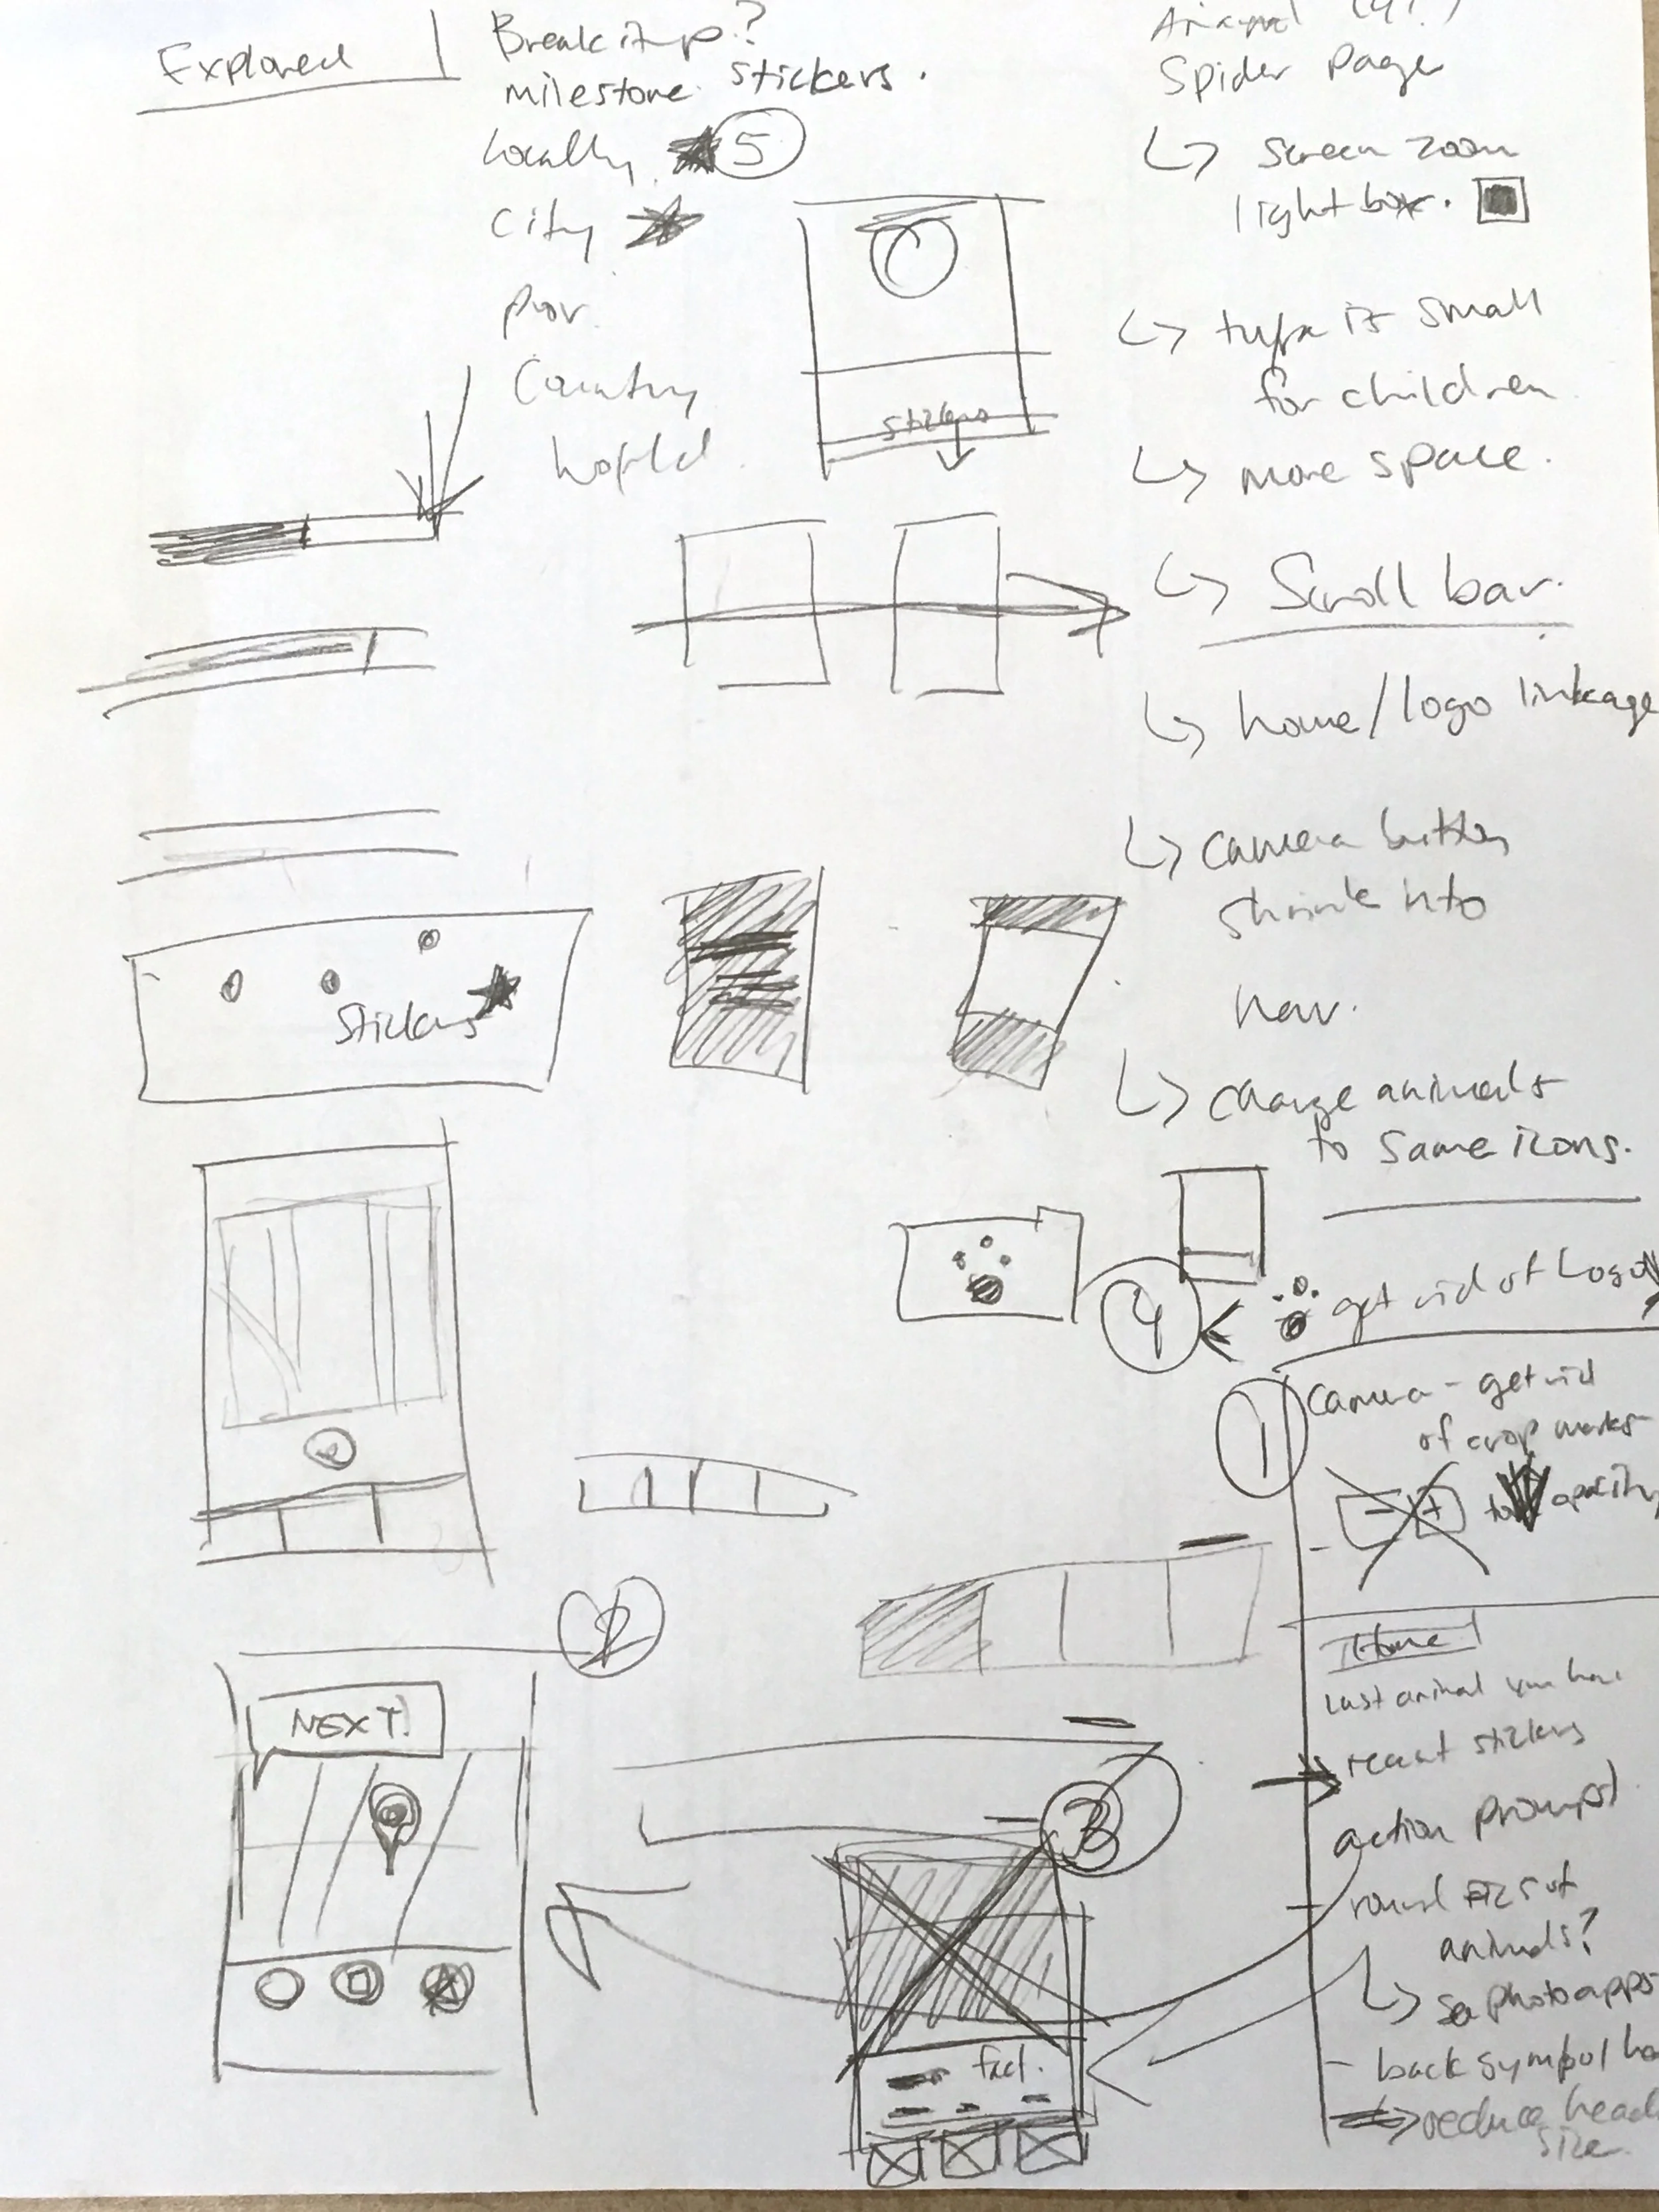 Explored
Break it up?
milestone stickers.
Locally 5
City
prov.
Country
World.
Spider Page
↳ screen zoom
lightbox.
↳ type is small
for children
↳ more space.
↳ Scroll bar.
↳ home/logo linkage
↳ camera button
shrink into
nav.
↳ change animals
to same icons.
stickers
Stickers
4
get rid of Logo
1
Camera - get rid
of crop marks
- +
opacity
2
NEXT!
3
fact.
Home
Last animal you
recent stickers
action prompt
round pics of
animals?
↳ see photo apps
- back symbol
reduce head
size